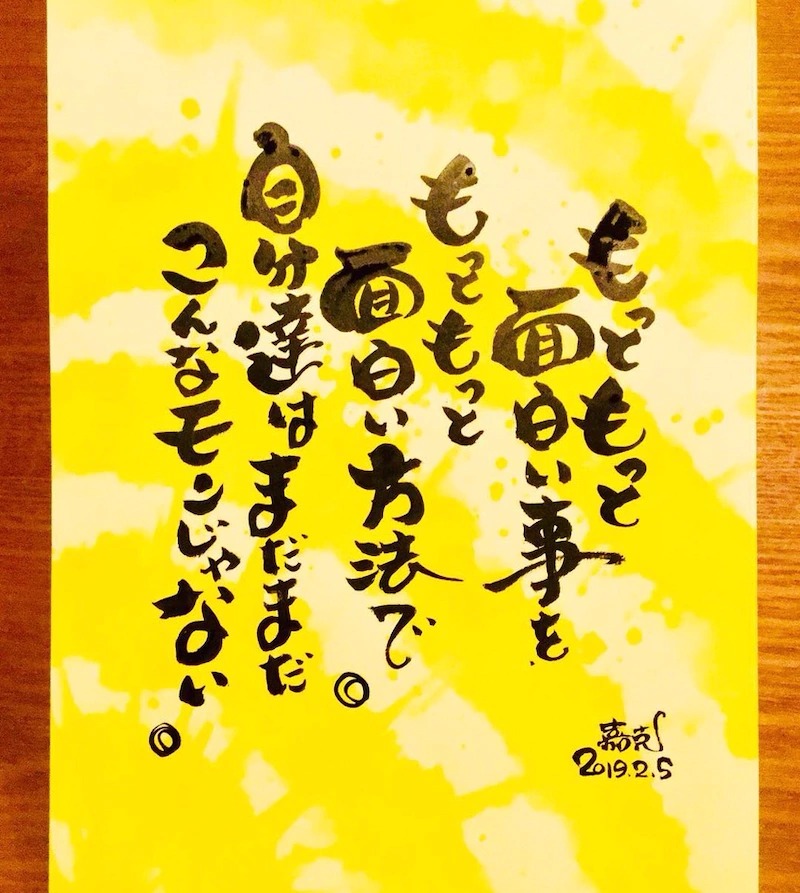 もっともっと
面白い事を
もっともっと
面白い方法で。
自分達はまだまだ
こんなモンじゃない。
嘉克
2019.2.5